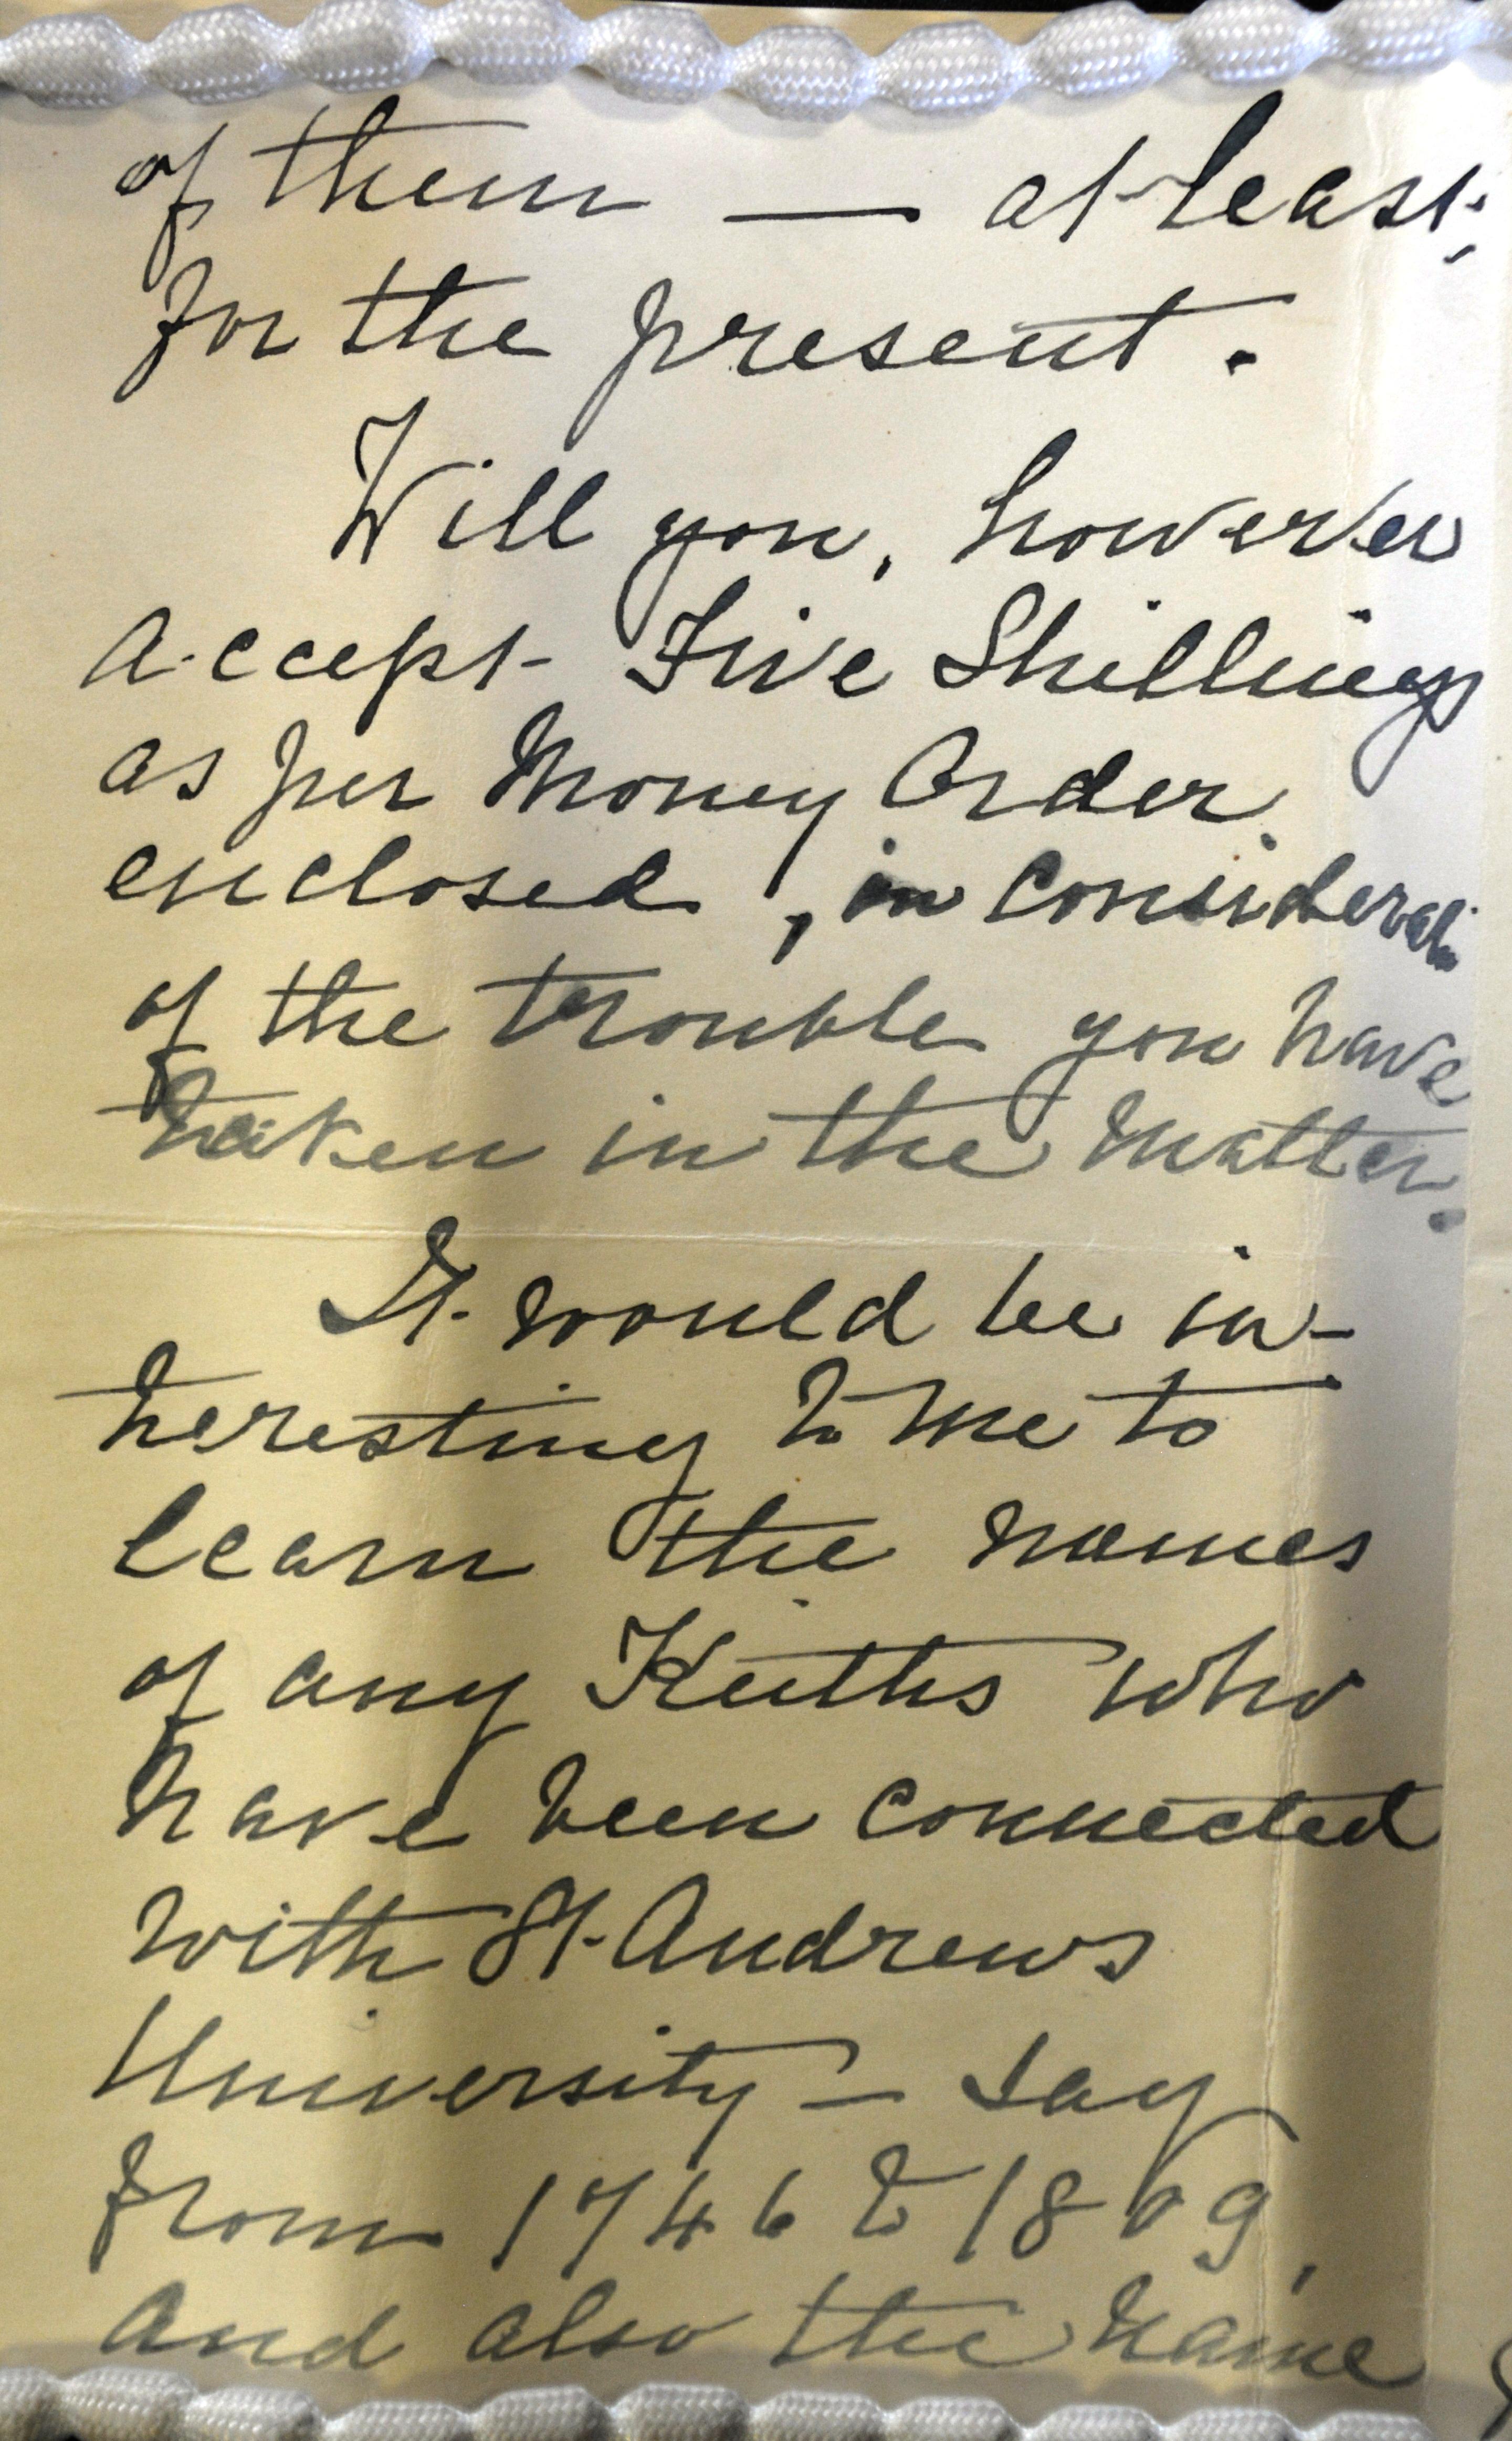 of them — at least,
for the present.
Will you, however
accept Five Shillings
as per Money Order
enclosed, in considerat:
of the trouble you have
taken in the matter.
It would be in-
teresting to me to
learn the names
of any Keiths who
have been connected
with St. Andrews
University — say
from 1746 to 1809,
and also the name